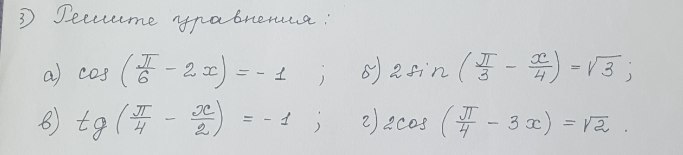 3) Решите уравнения:
а) cos(π/6 - 2x) = -1 ; б) 2sin(π/3 - x/4) = √3 ;
в) tg(π/4 - x/2) = -1 ; г) 2cos(π/4 - 3x) = √2 .